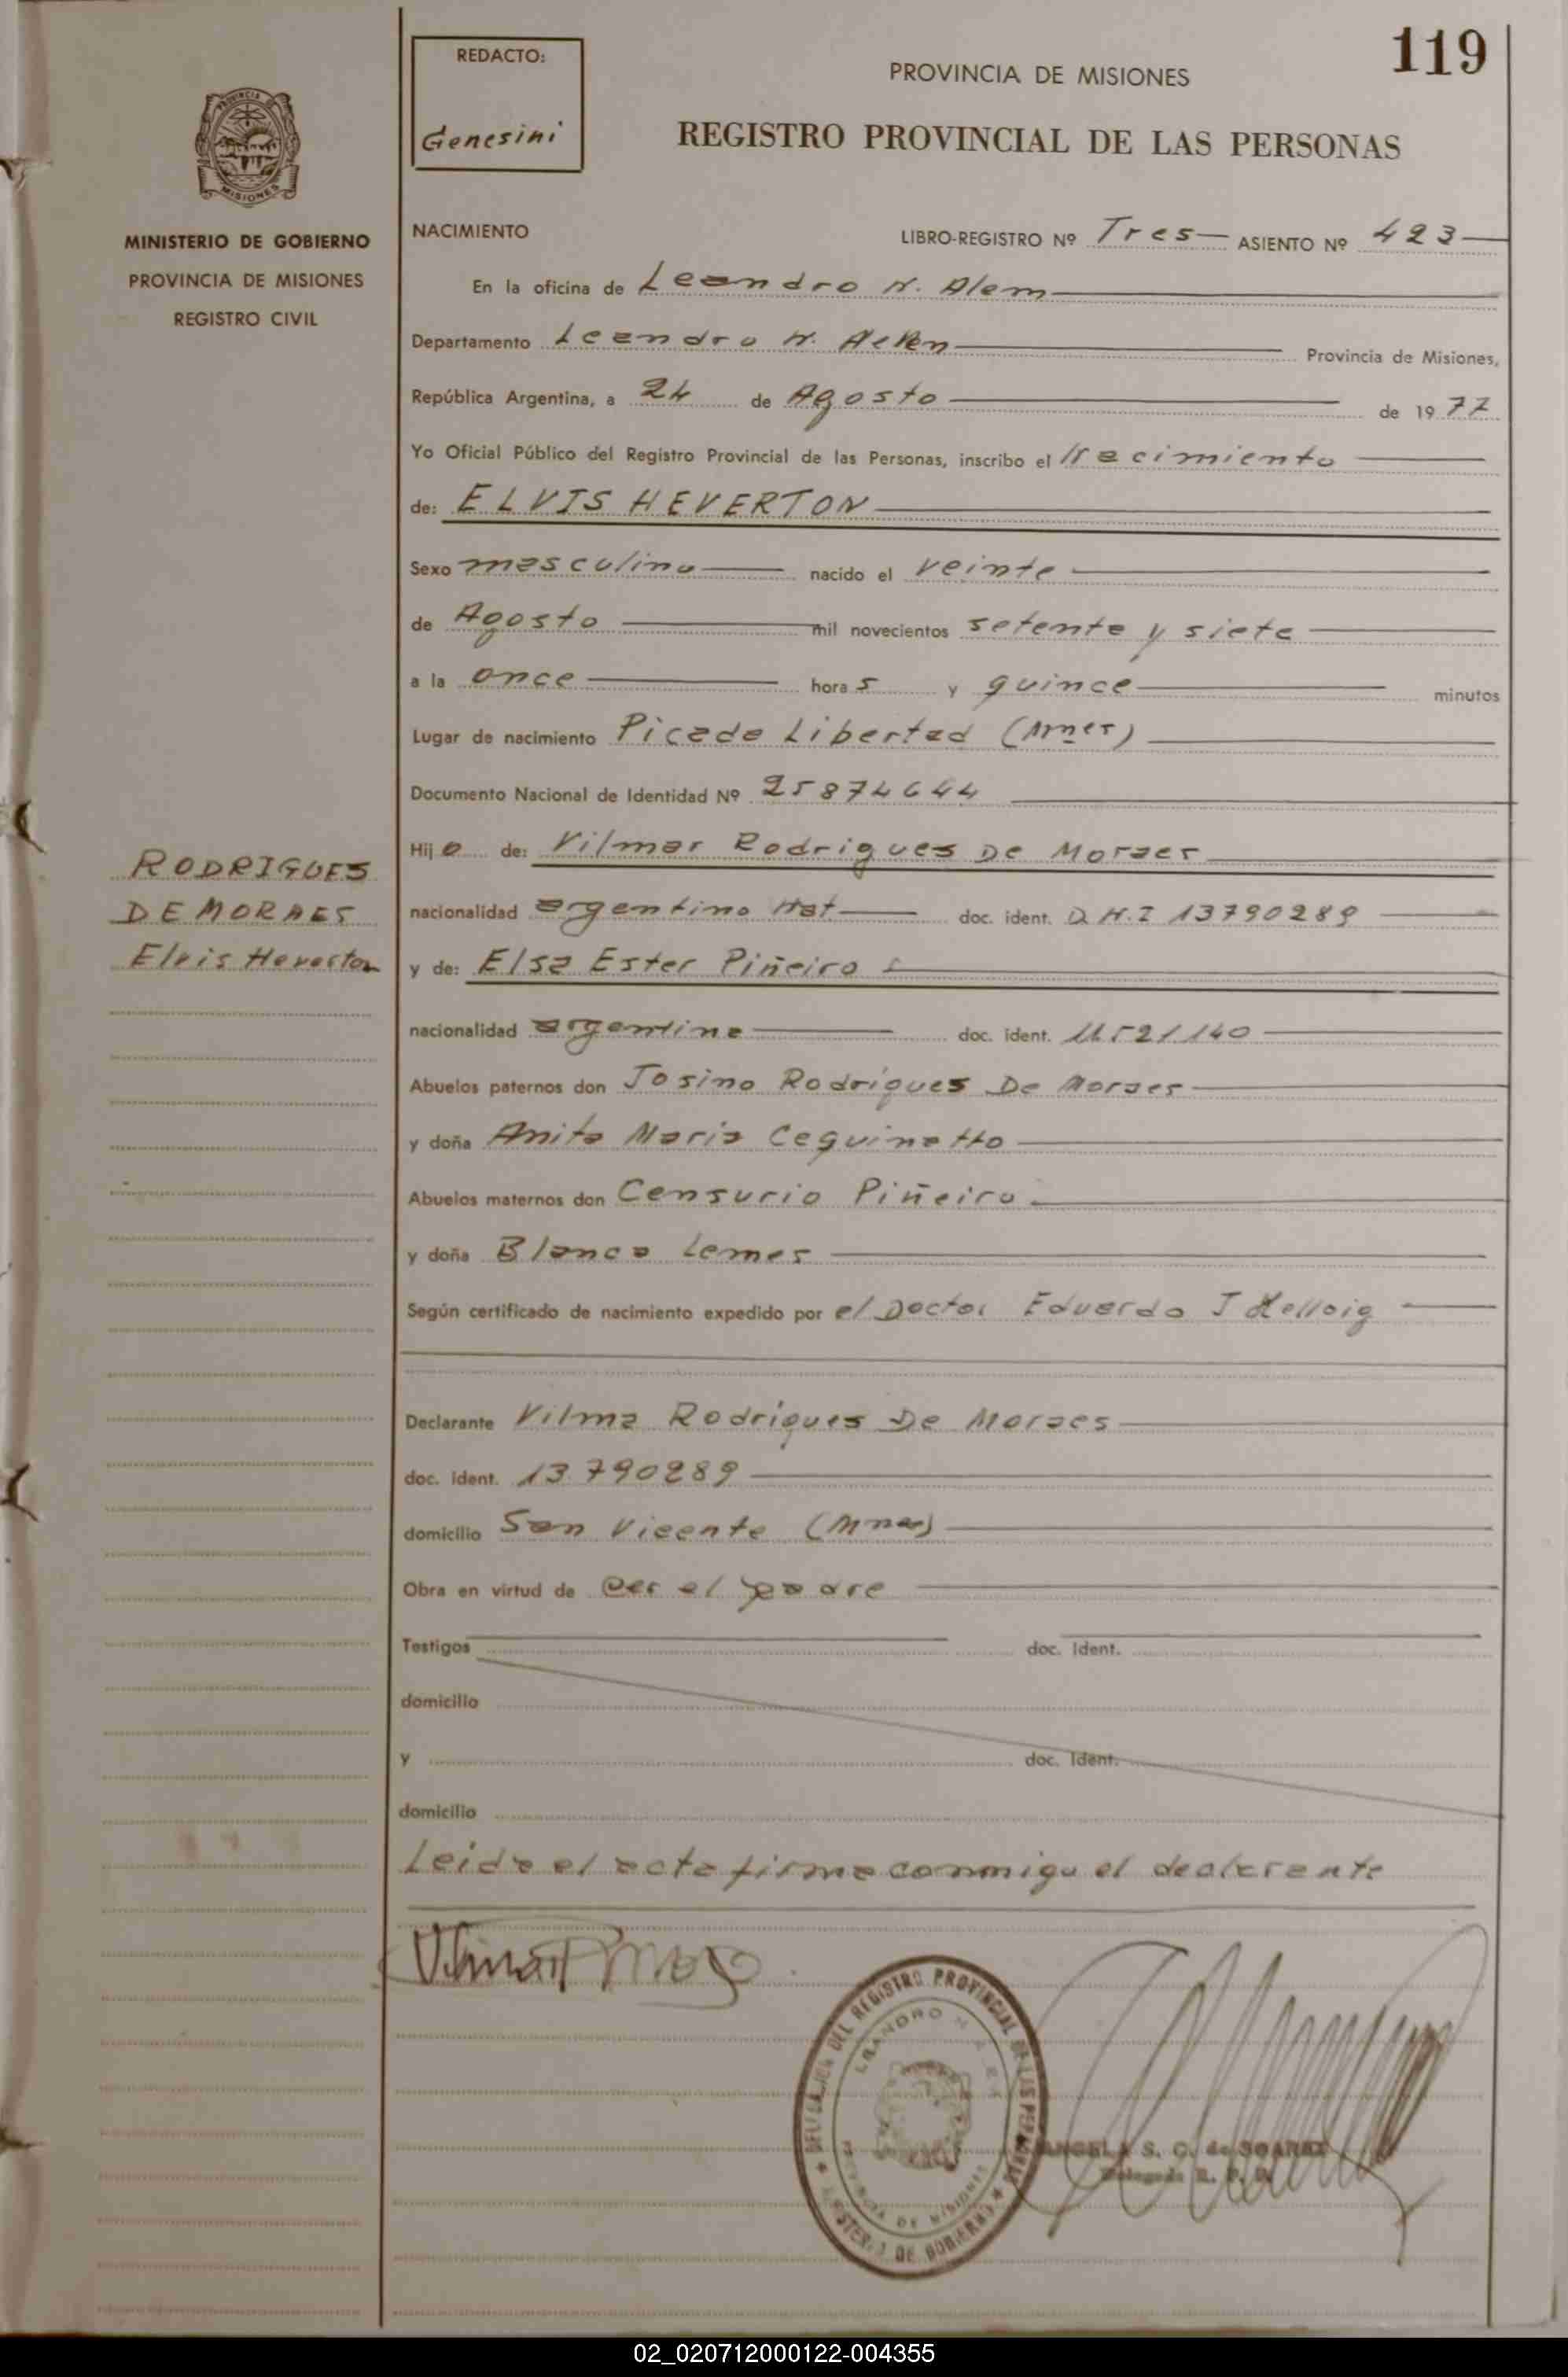 119
REDACTO:
Genesini
PROVINCIA DE MISIONES
REGISTRO PROVINCIAL DE LAS PERSONAS
PROVINCIA DE
MISIONES
MINISTERIO DE GOBIERNO
PROVINCIA DE MISIONES
REGISTRO CIVIL
NACIMIENTO LIBRO-REGISTRO Nº Tres ASIENTO Nº 423
En la oficina de Leandro N. Alem
Departamento Leandro N. Provincia de Misiones,
República Argentina, a 24 de Agosto de 1977
Yo Oficial Público del Registro Provincial de las Personas, inscribo el Nacimiento
de: ELVIS HEVERTON
Sexo masculino nacido el veinte
de Agosto mil novecientos setenta y siete
a la once horas y quince minutos
Lugar de nacimiento Picada Libertad
Documento Nacional de Identidad Nº 25874644
Hijo de: Vilmar Rodrigues De Moraes
nacionalidad argentino Nat doc. ident. D.N.I 13790289
y de: Elsa Ester Piñeiro
nacionalidad argentina doc. ident. 11521140
Abuelos paternos don Josino Rodrigues De Moraes
y doña Anita Maria Ceguinatto
Abuelos maternos don Censurio Piñeiro
y doña Blanca Lemes
Según certificado de nacimiento expedido por el Doctor Eduardo J
Declarante Vilma Rodrigues De Moraes
doc. ident. 13.790289
domicilio San Vicente (Mnes)
Obra en virtud de ser el padre
Testigos doc. Ident.
domicilio
y doc. Ident.
domicilio
Leida el acta firma conmigo el declarante
RODRIGUES
DE MORAES
Elvis Heverton
DEL REGISTRO PROVINCIAL DE LAS PERSONAS
LEANDRO N
PROVINCIA DE MISIONES
DE GOBIERNO
ANGELA S. C. de
Delegada R. P. P.
02_020712000122-004355